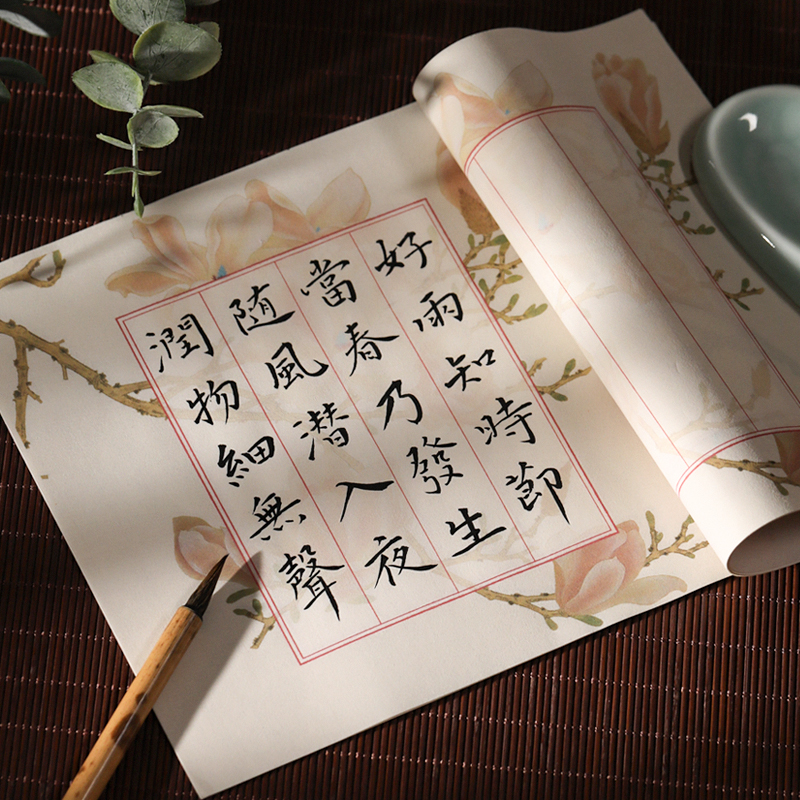 好雨知時節
當春乃發生
随風潜入夜
潤物細無聲